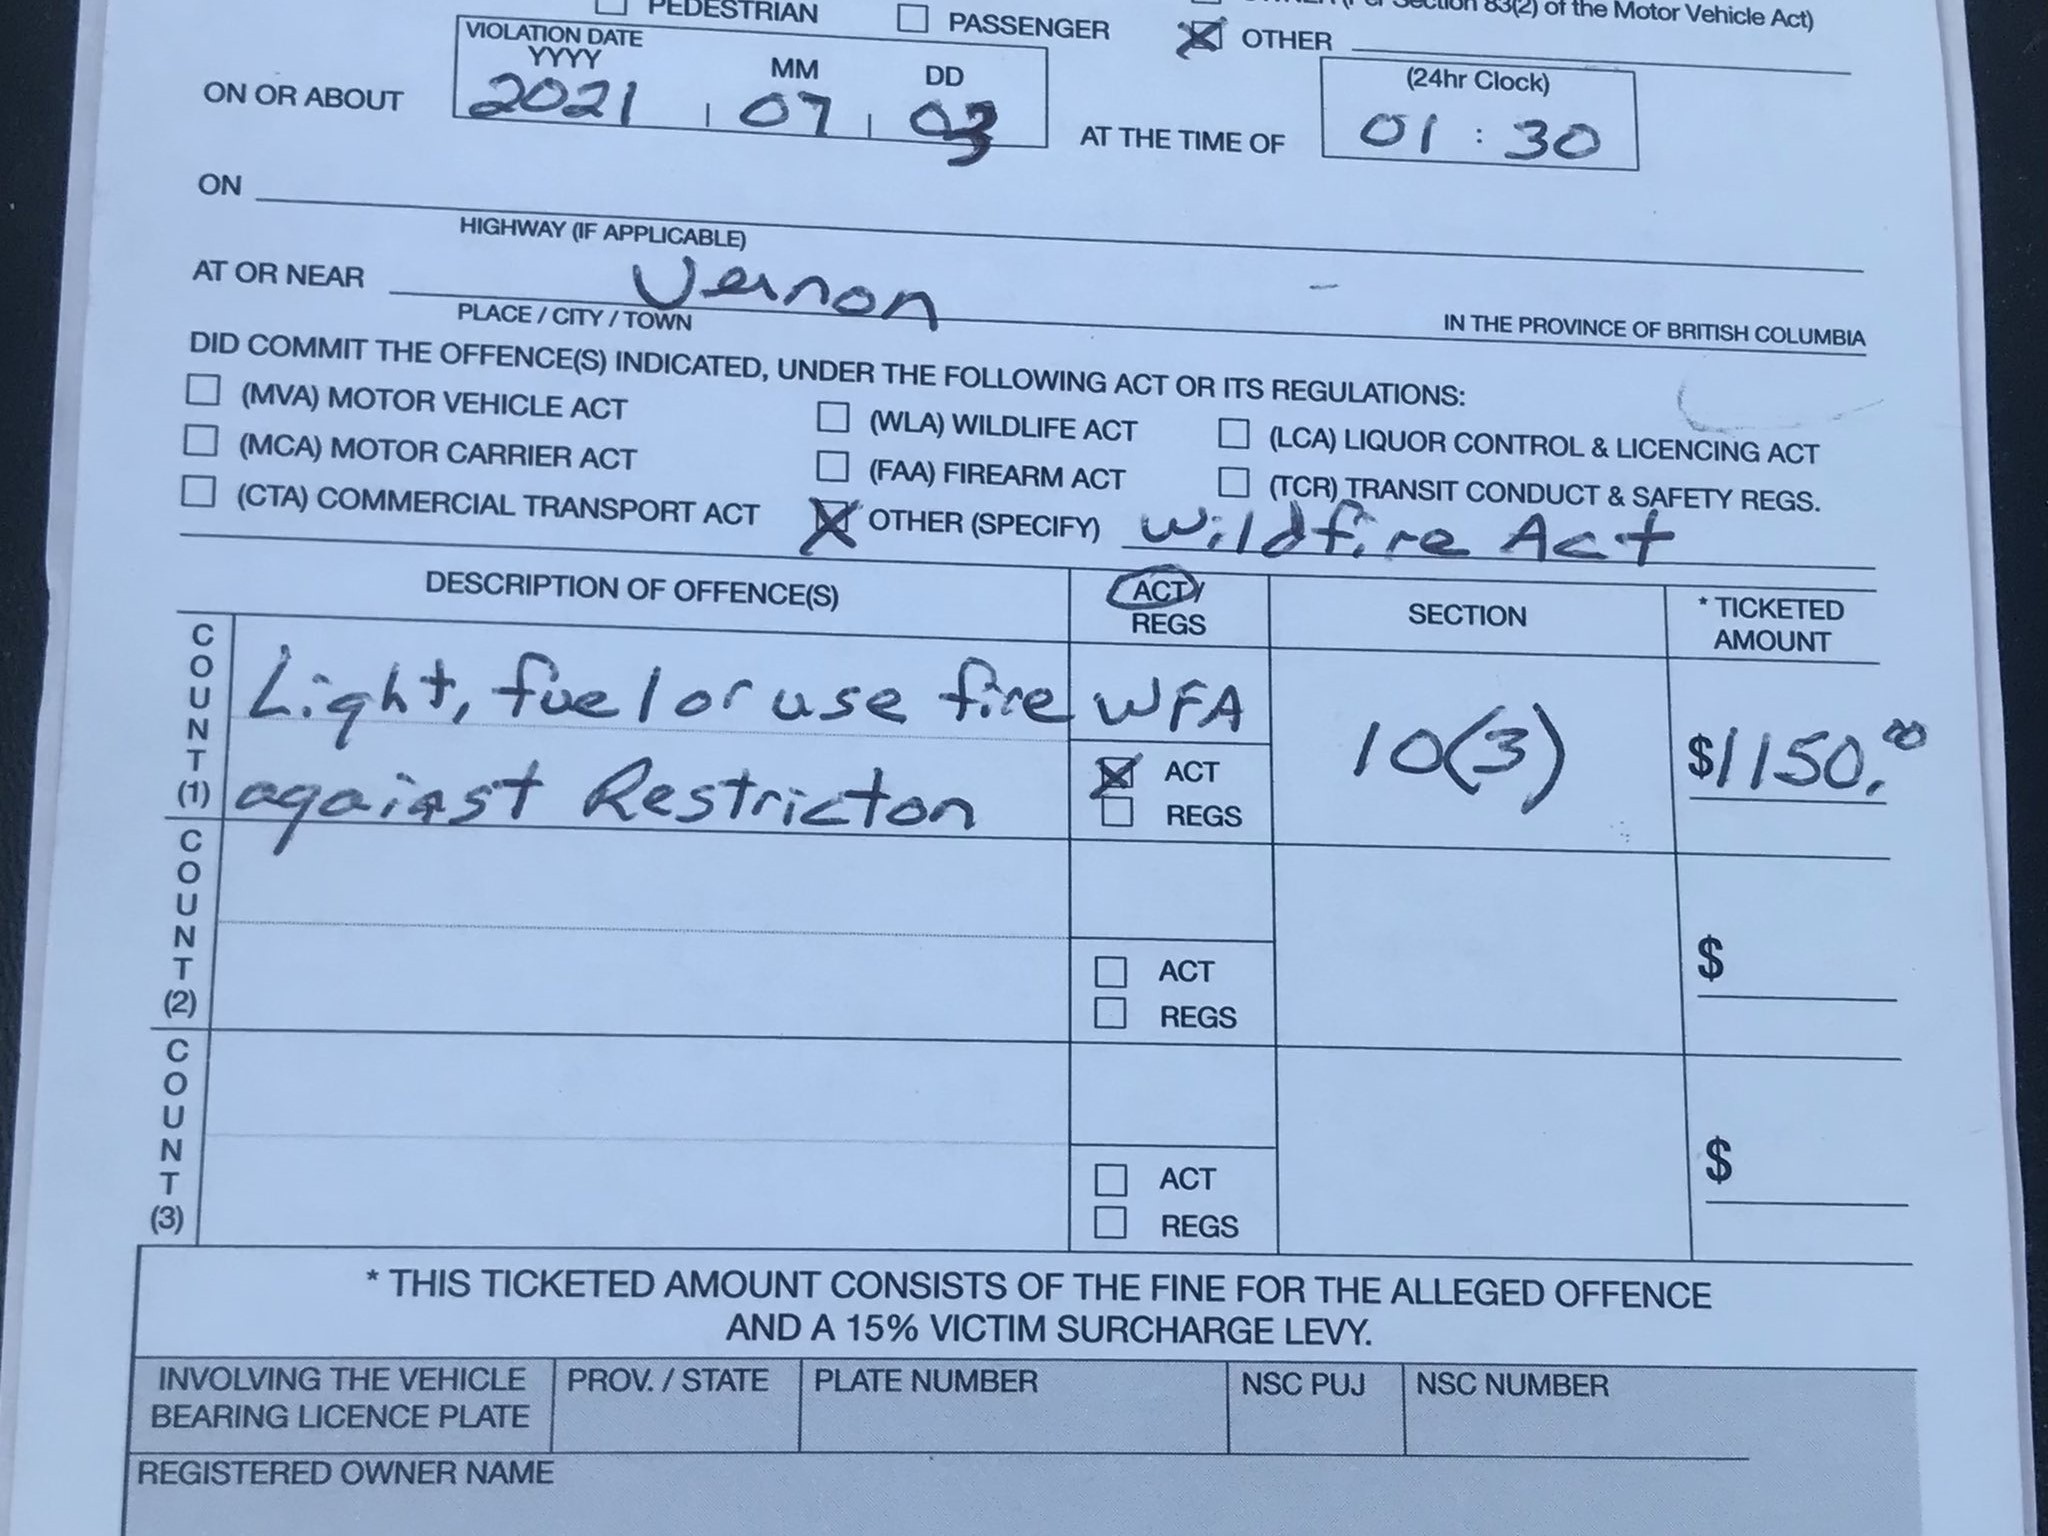 PEDESTRIAN PASSENGER OTHER
Section 83(2) of the Motor Vehicle Act)
VIOLATION DATE
YYYY MM DD (24hr Clock)
ON OR ABOUT 2021 07 03 AT THE TIME OF 01 : 30
ON
HIGHWAY (IF APPLICABLE)
AT OR NEAR Vernon
PLACE / CITY / TOWN IN THE PROVINCE OF BRITISH COLUMBIA
DID COMMIT THE OFFENCE(S) INDICATED, UNDER THE FOLLOWING ACT OR ITS REGULATIONS:
(MVA) MOTOR VEHICLE ACT (WLA) WILDLIFE ACT (LCA) LIQUOR CONTROL & LICENCING ACT
(MCA) MOTOR CARRIER ACT (FAA) FIREARM ACT (TCR) TRANSIT CONDUCT & SAFETY REGS.
(CTA) COMMERCIAL TRANSPORT ACT OTHER (SPECIFY) Wildfire Act
DESCRIPTION OF OFFENCE(S) ACT/ REGS SECTION * TICKETED AMOUNT
COUNT (1)
Light, fuel or use fire WFA 10(3) $1150.00
against Restricton ACT
REGS
COUNT (2)
$
ACT
REGS
COUNT (3)
$
ACT
REGS
* THIS TICKETED AMOUNT CONSISTS OF THE FINE FOR THE ALLEGED OFFENCE
AND A 15% VICTIM SURCHARGE LEVY.
INVOLVING THE VEHICLE PROV. / STATE PLATE NUMBER NSC PUJ NSC NUMBER
BEARING LICENCE PLATE
REGISTERED OWNER NAME